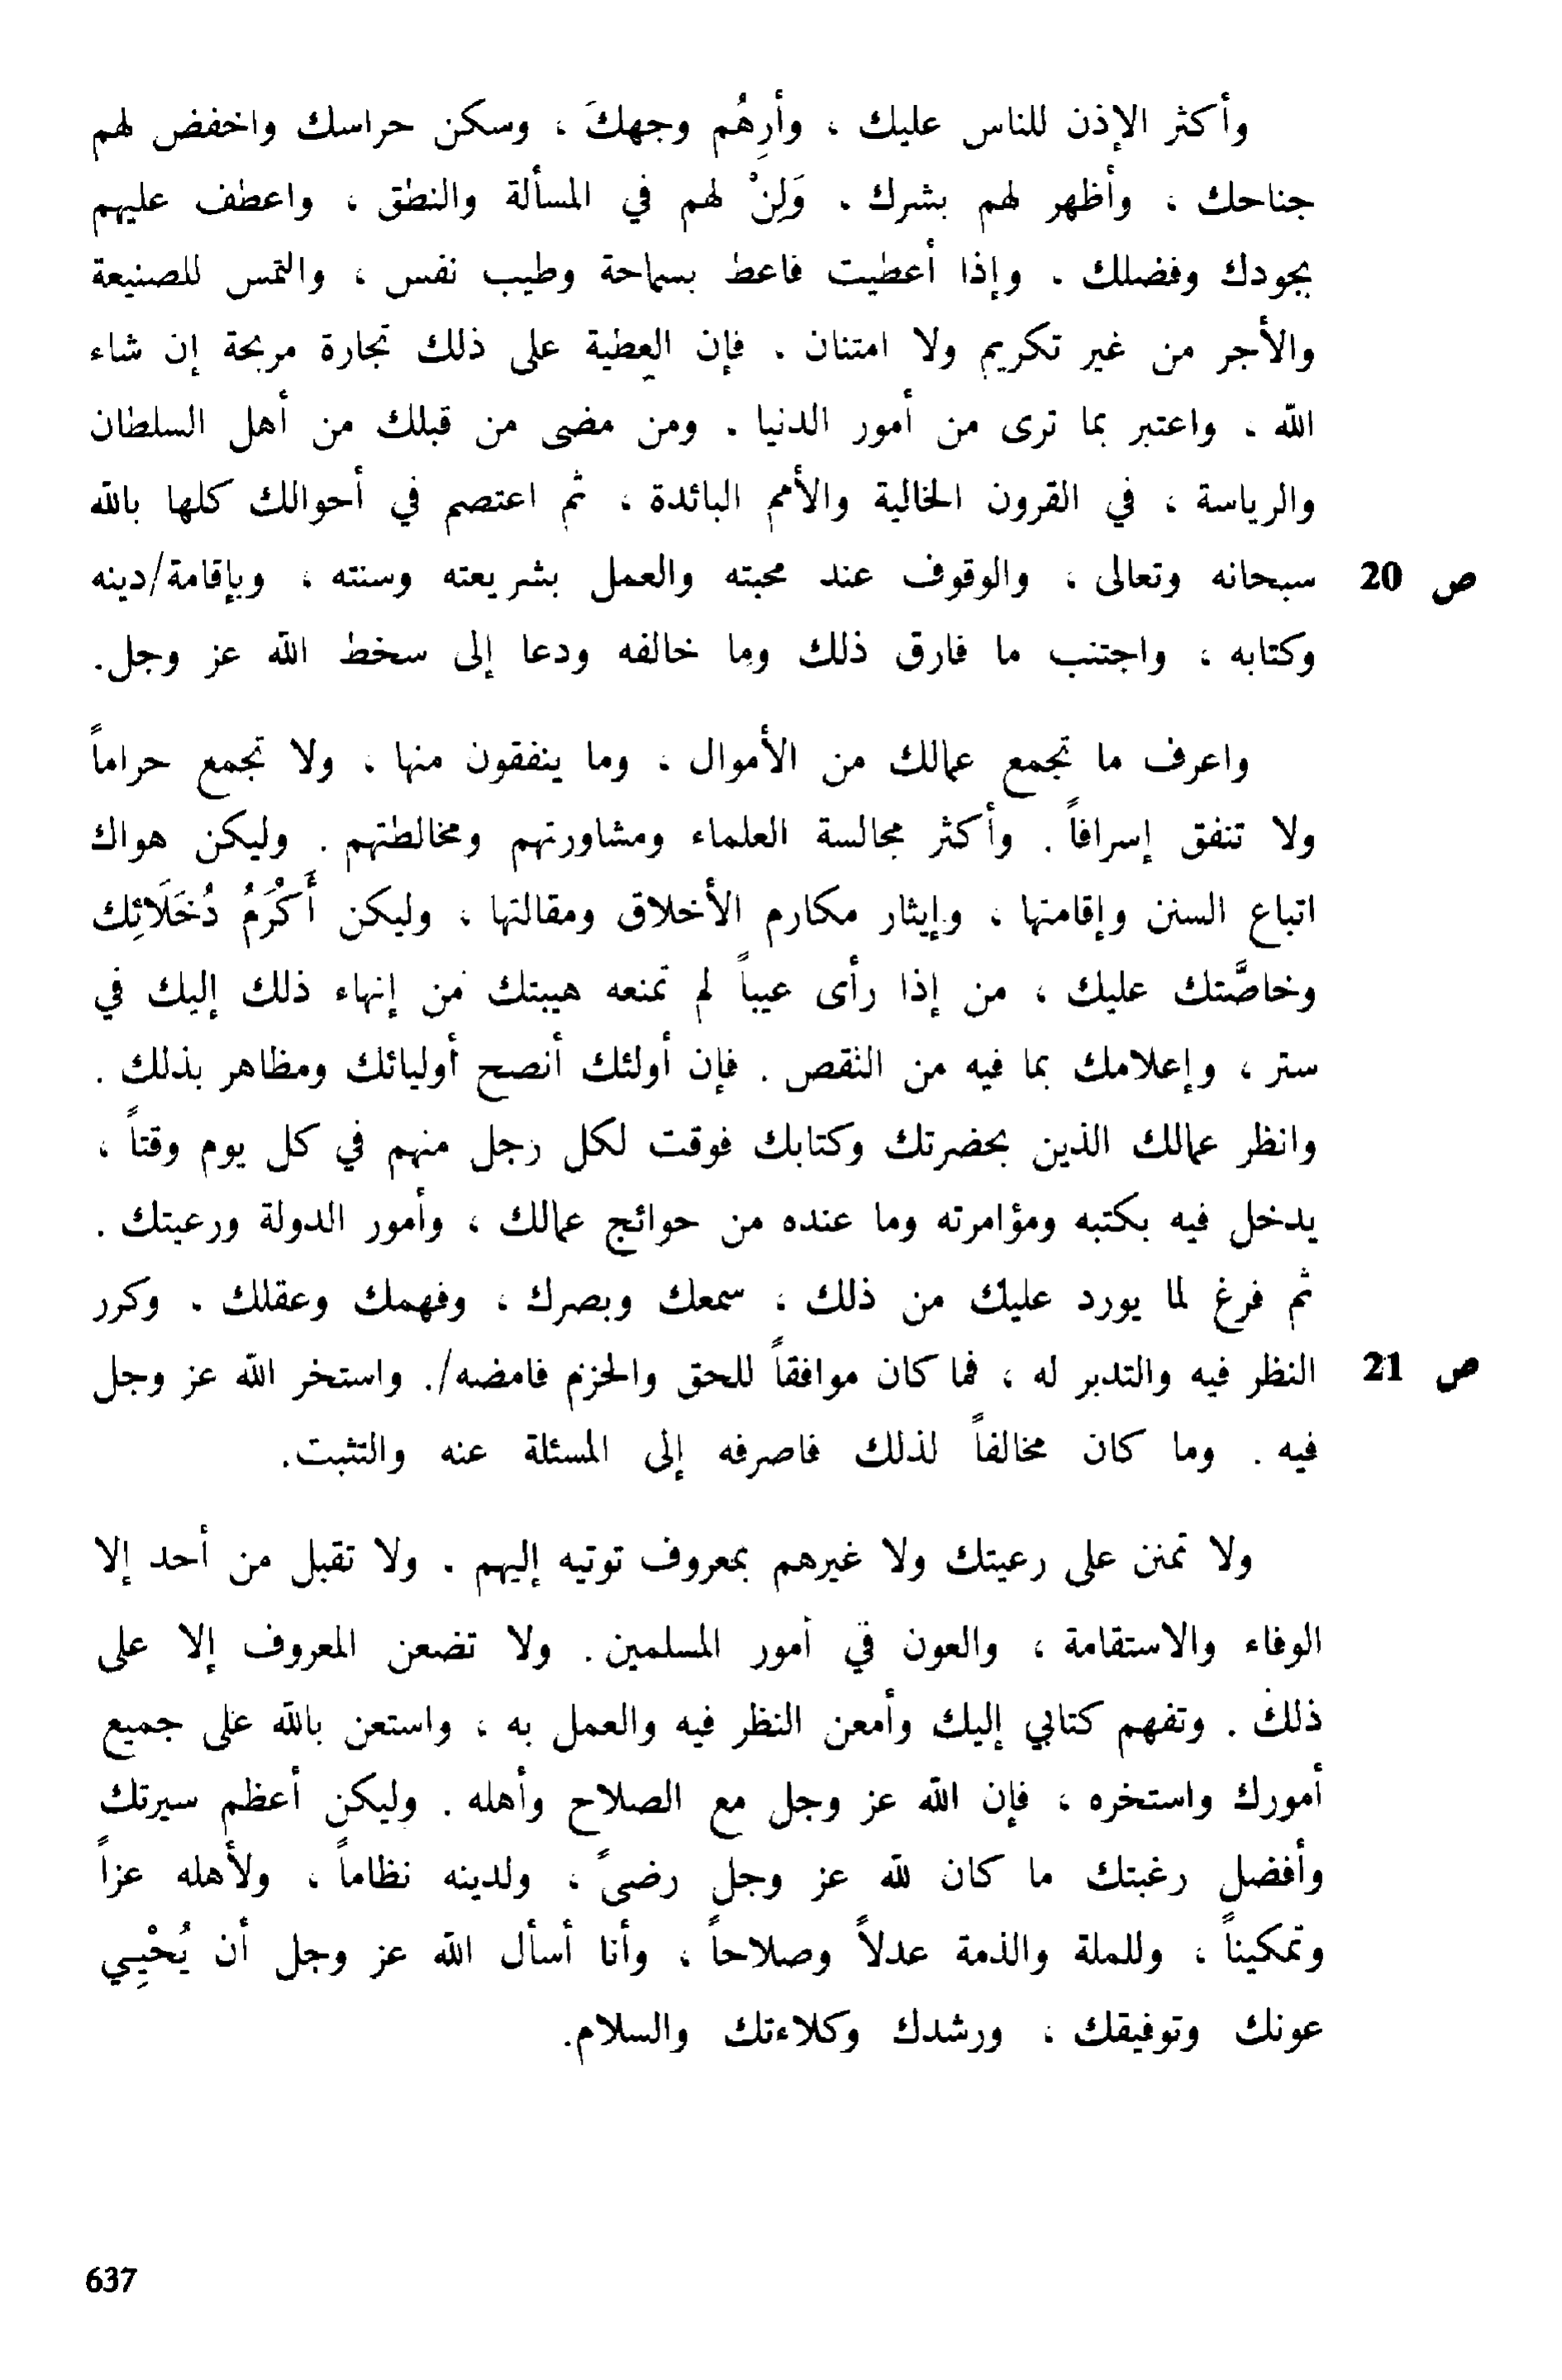 وأكثر الإذن للناس عليك ، وأرِهُم وجهكَ ، وسكن حراسك واخفض لهم
جناحك ، وأظهر لهم بشرك . وَلِنْ لهم في المسألة والنطق ، واعطف عليهم
بجودك وفضلك . وإذا أعطيت فاعط بسماحة وطيب نفس ، والتمس للصنيعة
والأجر من غير تكريم ولا امتنان . فإن العطية على ذلك تجارة مربحة إن شاء
الله ، واعتبر بما ترى من أمور الدنيا . ومن مضى من قبلك من أهل السلطان
والرياسة ، في القرون الخالية والأمم البائدة ، ثم اعتصم في أحوالك كلها بالله
ص 20 سبحانه وتعالى ، والوقوف عند محبته والعمل بشريعته وسنته ، وبإقامة/دينه
وكتابه ، واجتنب ما فارق ذلك وما خالفه ودعا إلى سخط الله عز وجل.
واعرف ما تجمع عمالك من الأموال ، وما ينفقون منها ، ولا تجمع حراماً
ولا تنفق إسرافاً . وأكثر مجالسة العلماء ومشاورتهم ومخالطتهم . وليكن هواك
اتباع السنن وإقامتها ، وإيثار مكارم الأخلاق ومقالتها ، وليكن أَكْرَمُ دُخَلَائِك
وخاصَّتك عليك ، من إذا رأى عيباً لم تمنعه هيبتك من إنهاء ذلك إليك في
ستر ، وإعلامك بما فيه من النقص . فإن أولئك أنصح أوليائك ومظاهر بذلك .
وانظر عمالك الذين بحضرتك وكتابك فوقت لكل رجل منهم في كل يوم وقتاً ،
يدخل فيه بكتبه ومؤامرته وما عنده من حوائج عمالك ، وأمور الدولة ورعيتك .
ثم فرغ لما يورد عليك من ذلك ، سمعك وبصرك ، وفهمك وعقلك . وكرر
ص 21 النظر فيه والتدبر له ، فما كان موافقاً للحق والحزم فامضه/. واستخر الله عز وجل
فيه . وما كان مخالفاً لذلك فاصرفه إلى المسئلة عنه والتثبت.
ولا تمنن على رعيتك ولا غيرهم بمعروف توتيه إليهم . ولا تقبل من أحد إلا
الوفاء والاستقامة ، والعون في أمور المسلمين . ولا تضعن المعروف إلا على
ذلك . وتفهم كتابي إليك وأمعن النظر فيه والعمل به ، واستعن بالله على جميع
أمورك واستخره ، فإن الله عز وجل مع الصلاح وأهله . وليكن أعظم سيرتك
وأفضل رغبتك ما كان لله عز وجل رضىً ، ولدينه نظاماً ، ولأهله عزاً
وتمكيناً ، وللملة والذمة عدلاً وصلاحاً ، وأنا أسأل الله عز وجل أن يُحْيِي
عونك وتوفيقك ، ورشدك وكلاءتك والسلام.
637